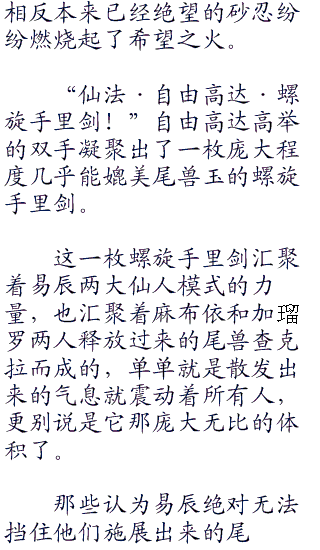 相反本来已经绝望的砂忍纷
纷燃烧起了希望之火。
“仙法·自由高达·螺
旋手里剑！”自由高达高举
的双手凝聚出了一枚庞大程
度几乎能媲美尾兽玉的螺旋
手里剑。
这一枚螺旋手里剑汇聚
着易辰两大仙人模式的力
量，也汇聚着麻布依和加瑠
罗两人释放过来的尾兽查克
拉而成的，单单就是散发出
来的气息就震动着所有人，
更别说是它那庞大无比的体
积了。
那些认为易辰绝对无法
挡住他们施展出来的尾